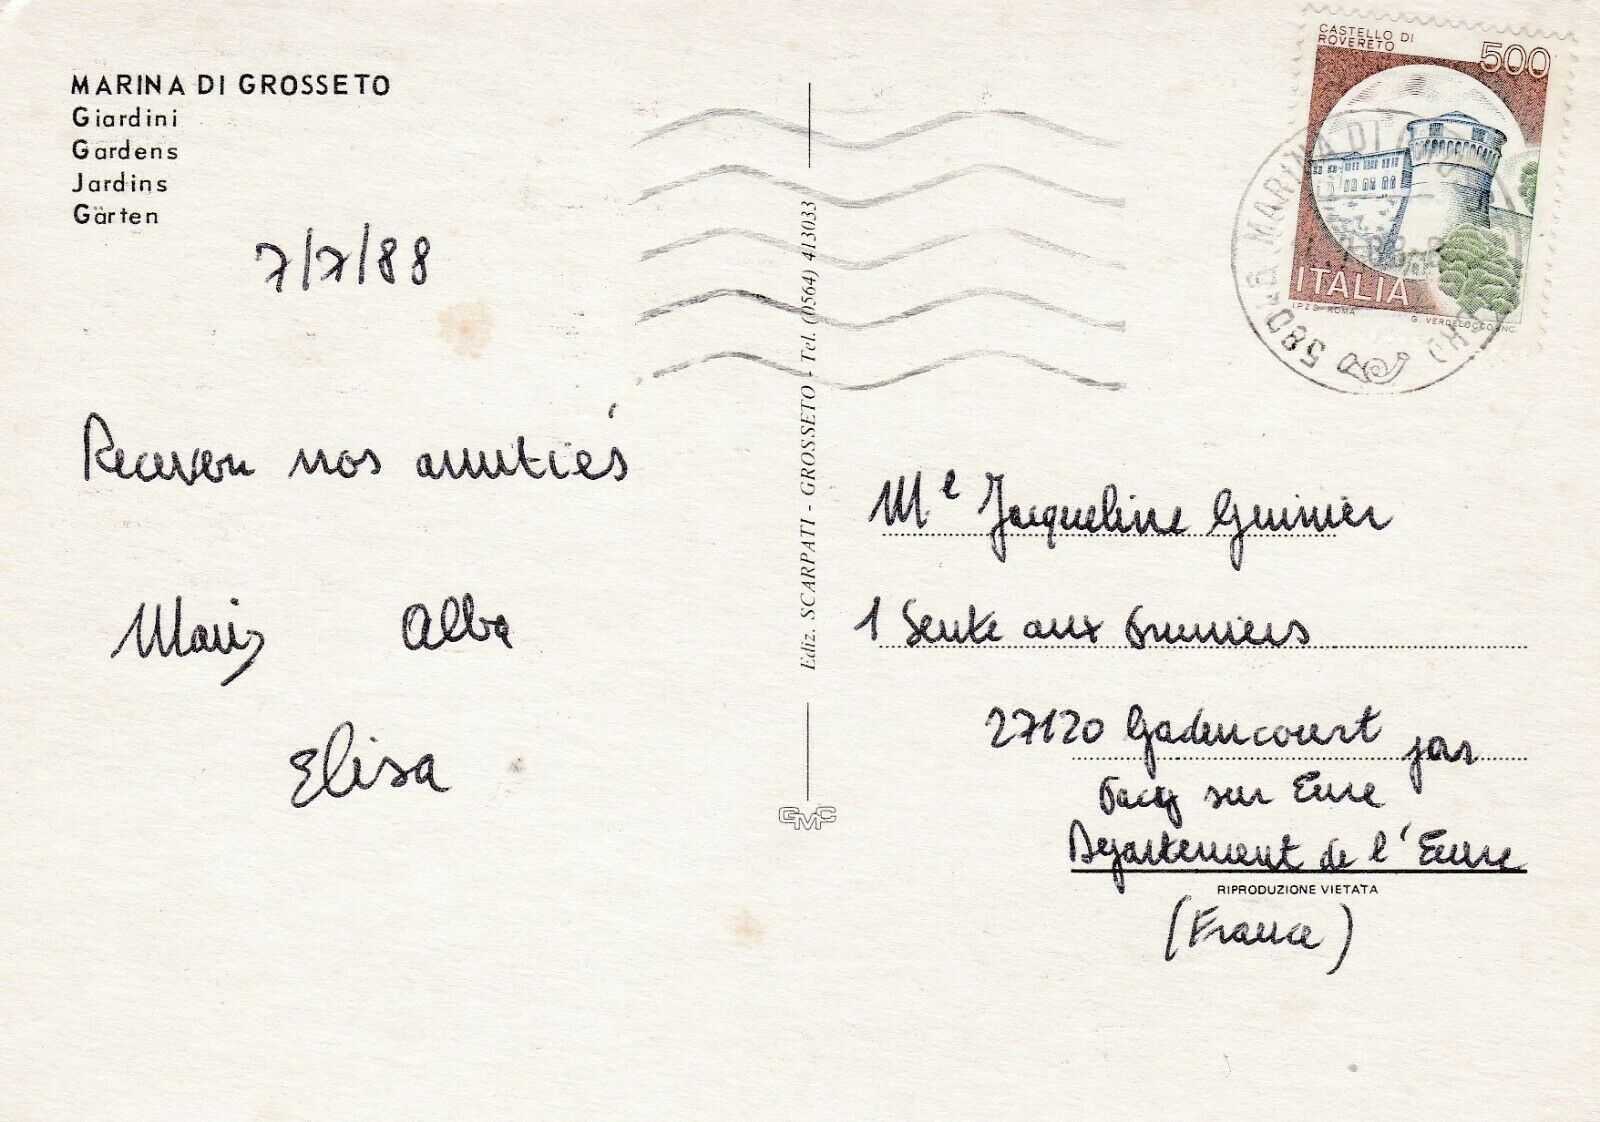 MARINA DI GROSSETO
Giardini
Gardens
Jardins
Gärten
7/7/88
Recevez nos amitiés
Alba
Elisa
Ediz. SCARPATI - GROSSETO - Tel. (0564) 413033
GMC
CASTELLO DI
ROVERETO
500
ITALIA
I.P.Z.S. ROMA
G. VERDELOCCO INC.
MARINA DI
580
Mle Jacqueline
1 Sente aux
27120 Gadencourt par
Pacy sur Eure
Département de l'Eure
RIPRODUZIONE VIETATA
(France)